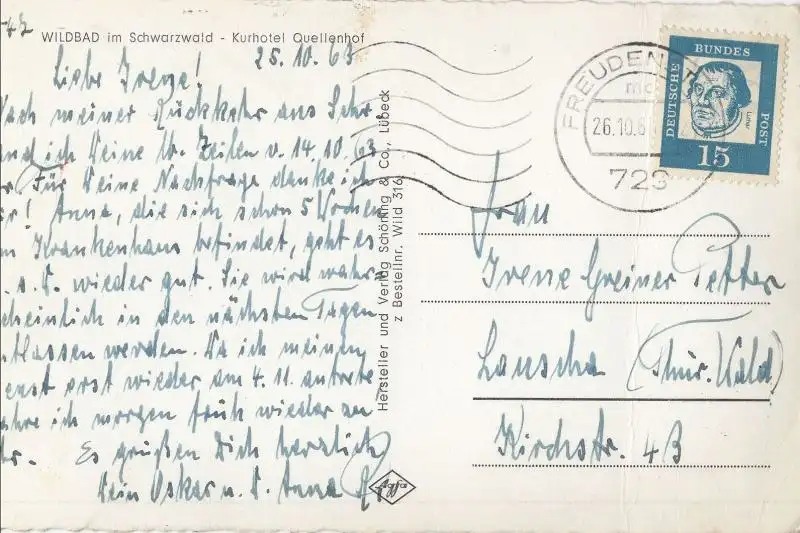 WILDBAD im Schwarzwald - Kurhotel Quellenhof
25.10.63
Liebe Irene!
Nach meiner Rückkehr aus Schr.
fand ich Deine lb. Zeilen v. 14.10.63
Für Deine Nachfrage danke ich
Anna, die sich schon 5 Wochen
im Krankenhaus befindet, geht es
wieder gut. Sie wird wahr=
scheinlich in den nächsten Tagen
entlassen werden. Da ich meinen
Dienst erst wieder am 4.11. antrete
fahre ich morgen früh wieder zu
Es grüßen Dich herzlich
Dein Oskar u. Anna
Hersteller und Verlag Schöning & Co., Lübeck
z Bestellnr. Wild 316
Agfa
FREUDEN
26.10.6
723
DEUTSCHE BUNDES POST
Luther
15
Frau
Irene Greiner Petter
Lauscha (Thür. Wald)
Kirchstr. 4B